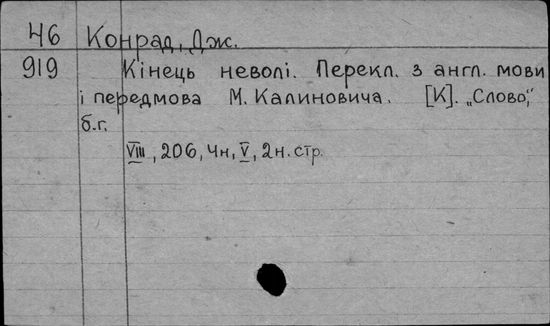 46 Конрад, Дж.
919 Кінець неволі. Перекл. з англ. мови
і передмова М. Калиновича. [К]. „Слово",
б.г.
VIII, 206, 4н, V, 2н. стр.